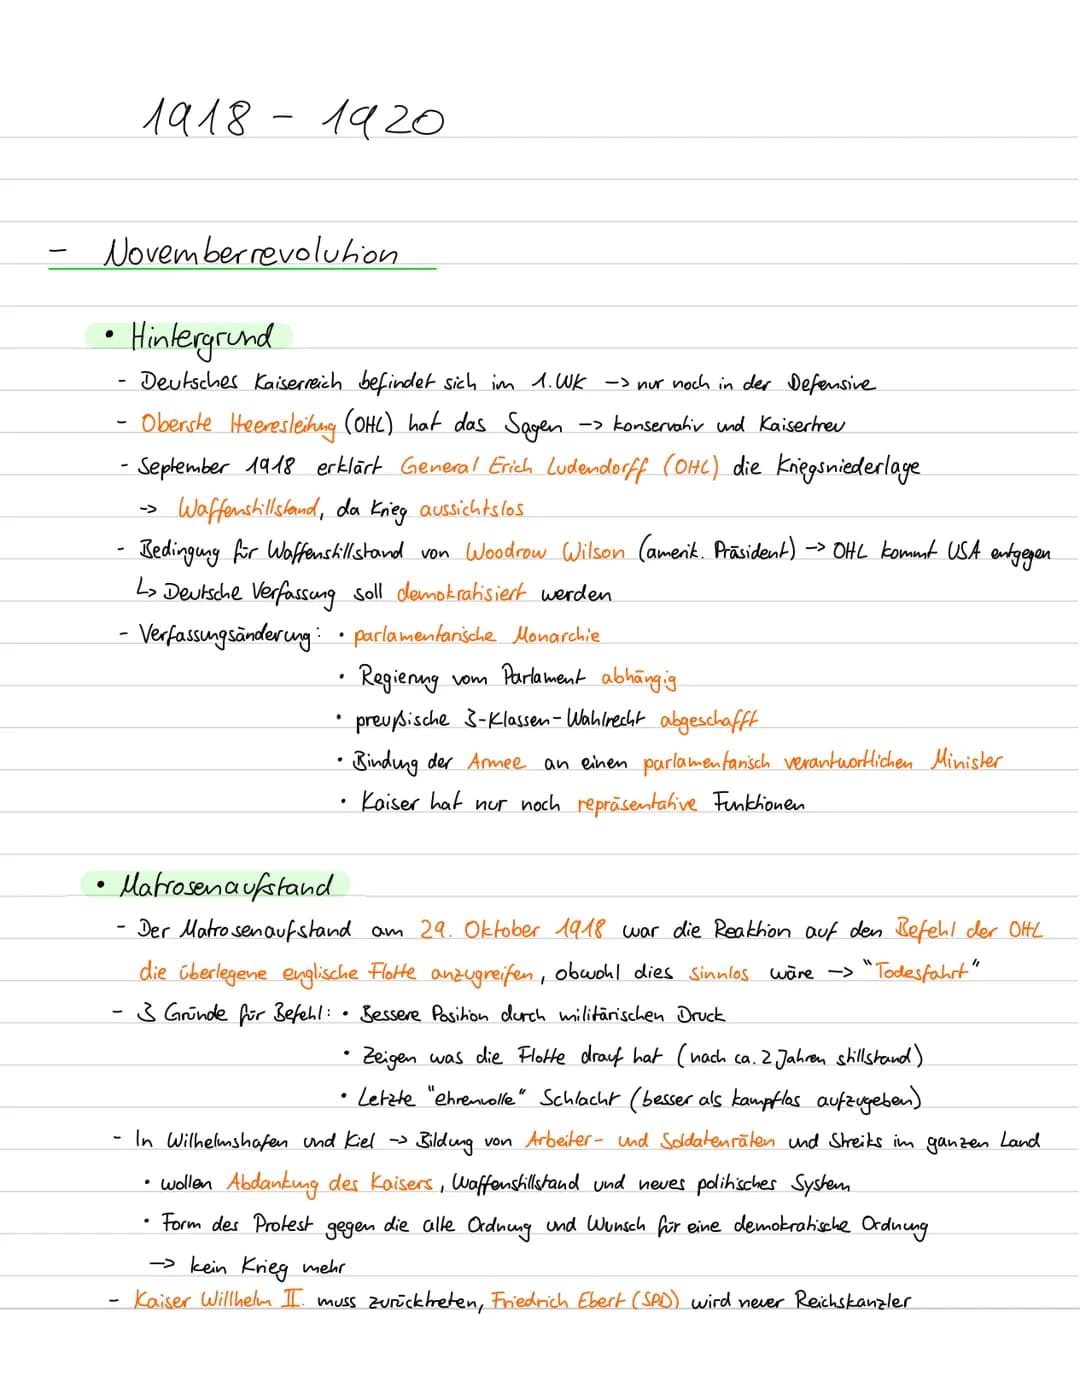 1918 - 1920
- Novemberrevolution
• Hintergrund
- Deutsches Kaiserreich befindet sich im 1. WK -> nur noch in der Defensive
- Oberste Heeresleitung (OHL) hat das Sagen -> konservativ und Kaisertreu
- September 1918 erklärt General Erich Ludendorff (OHL) die Kriegsniederlage
-> Waffenstillstand, da Krieg aussichtslos
- Bedingung für Waffenstillstand von Woodrow Wilson (amerik. Präsident) -> OHL kommt USA entgegen
↳ Deutsche Verfassung soll demokratisiert werden
- Verfassungsänderung: • parlamentarische Monarchie
• Regierung vom Parlament abhängig
• preußische 3-Klassen-Wahlrecht abgeschafft
• Bindung der Armee an einen parlamentarisch verantwortlichen Minister
• Kaiser hat nur noch repräsentative Funktionen
• Matrosenaufstand
- Der Matrosenaufstand am 29. Oktober 1918 war die Reaktion auf den Befehl der OHL
die überlegene englische Flotte anzugreifen, obwohl dies sinnlos wäre -> "Todesfahrt"
- 3 Gründe für Befehl: • Bessere Position durch militärischen Druck
• Zeigen was die Flotte drauf hat (nach ca. 2 Jahren stillstand)
• Letzte "ehrenvolle" Schlacht (besser als kampflos aufzugeben)
- In Wilhelmshafen und Kiel -> Bildung von Arbeiter- und Soldatenräten und Streiks im ganzen Land
• wollen Abdankung des Kaisers, Waffenstillstand und neues politisches System
• Form des Protest gegen die alte Ordnung und Wunsch für eine demokratische Ordnung
-> kein Krieg mehr
- Kaiser Willhelm II. muss zurücktreten, Friedrich Ebert (SPD) wird neuer Reichskanzler